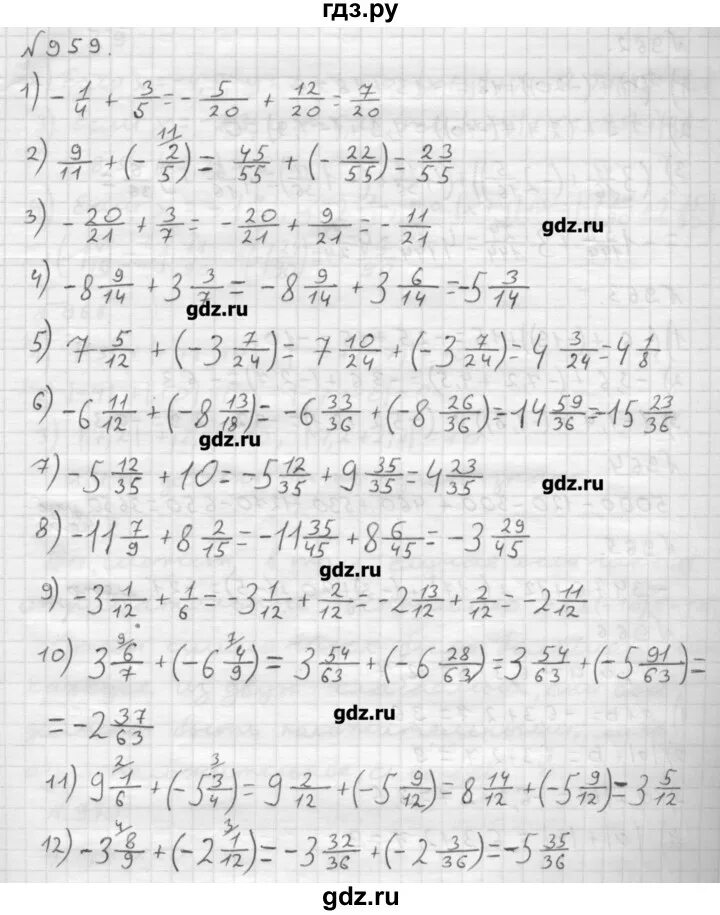 гдз.ру
№959.
1) -1/4 + 3/5 = -5/20 + 12/20 = 7/20
2) 9/11 + (-2/5) = 45/55 + (-22/55) = 23/55
3) -20/21 + 3/7 = -20/21 + 9/21 = -11/21
gdz.ru
4) -8 9/14 + 3 3/7 = -8 9/14 + 3 6/14 = -5 3/14
gdz.ru
5) 7 5/12 + (-3 7/24) = 7 10/24 + (-3 7/24) = 4 3/24 = 4 1/8
6) -6 11/12 + (-8 13/18) = -6 33/36 + (-8 26/36) = -14 59/36 = 15 23/36
gdz.ru
7) -5 12/35 + 10 = -5 12/35 + 9 35/35 = 4 23/35
gdz.ru
8) -11 7/9 + 8 2/15 = -11 35/45 + 8 6/45 = -3 29/45
gdz.ru
9) -3 1/12 + 1/6 = -3 1/12 + 2/12 = -2 13/12 + 2/12 = -2 11/12
10) 3 6/7 + (-6 4/9) = 3 54/63 + (-6 28/63) = 3 54/63 + (-5 91/63) =
= -2 37/63
gdz.ru
11) 9 1/6 + (-5 3/4) = 9 2/12 + (-5 9/12) = 8 14/12 + (-5 9/12) = 3 5/12
12) -3 8/9 + (-2 1/12) = -3 32/36 + (-2 3/36) = -5 35/36
gdz.ru